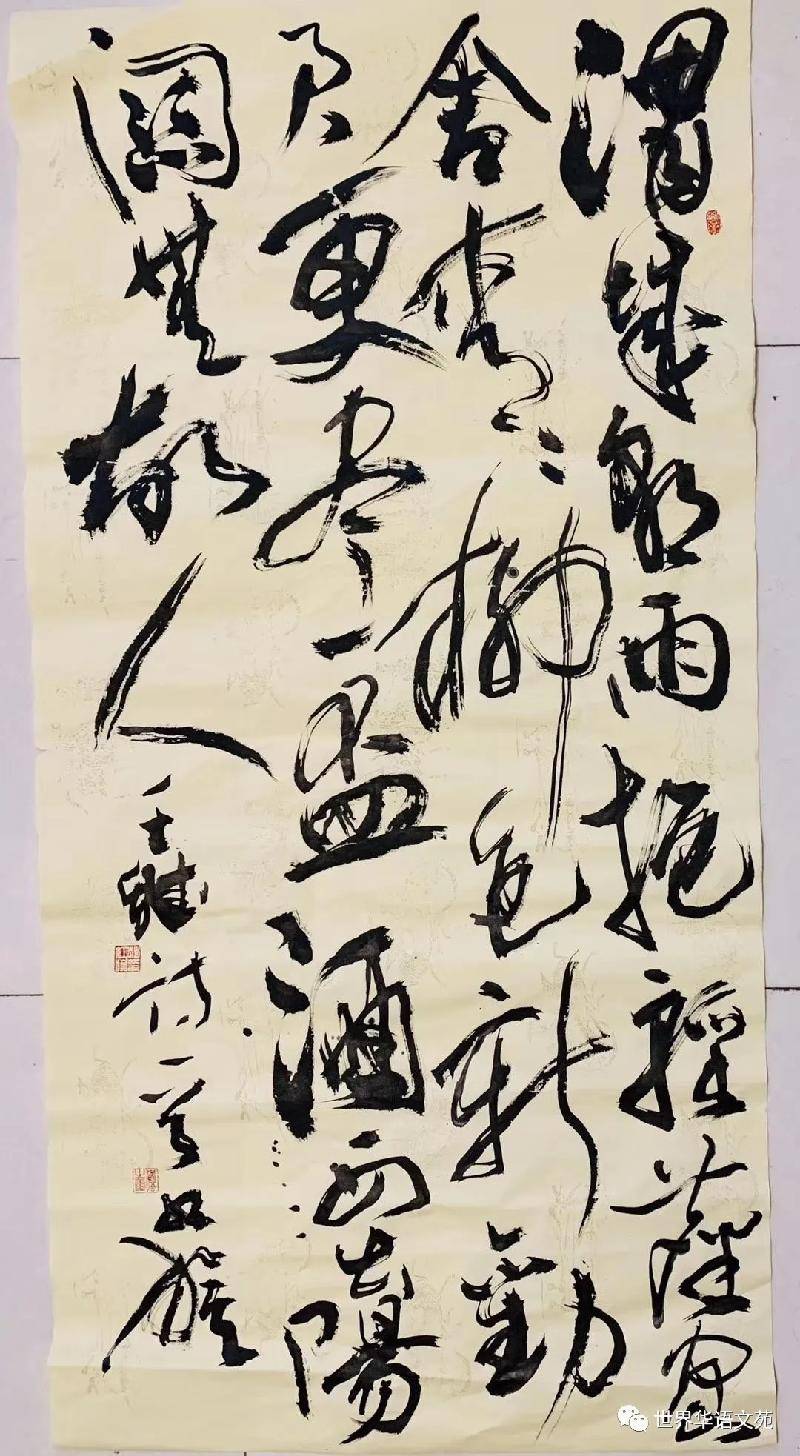 渭城朝雨挹輕塵客
舍青々柳色新勸
君更盡一盃酒西出陽
關無故人 王維詩一首
世界华语文苑